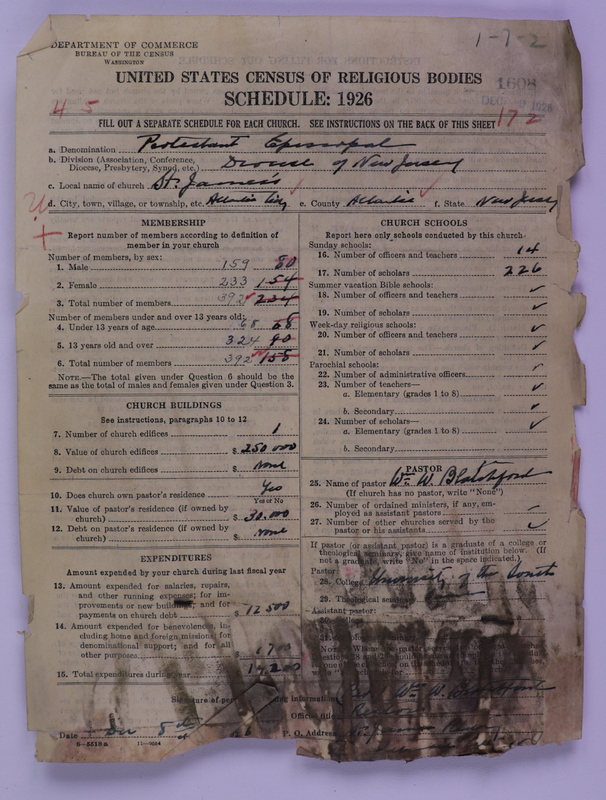 1-7-2
DEPARTMENT OF COMMERCE
BUREAU OF THE CENSUS
WASHINGTON
UNITED STATES CENSUS OF RELIGIOUS BODIES
SCHEDULE: 1926
1608
DEC 1926
4 5
172
FILL OUT A SEPARATE SCHEDULE FOR EACH CHURCH. SEE INSTRUCTIONS ON THE BACK OF THIS SHEET
a. Denomination Protestant Episcopal
b. Division (Association, Conference, Diocese, Presbytery, Synod, etc.) Diocese of New Jersey
c. Local name of church St. James's
d. City, town, village, or township, etc. Atlantic City e. County Atlantic f. State New Jersey
MEMBERSHIP
Report number of members according to definition of
member in your church
Number of members, by sex:
1. Male 159 80
2. Female 233 154
3. Total number of members 392 234
Number of members under and over 13 years old:
4. Under 13 years of age 68 68
5. 13 years old and over 324 90
6. Total number of members 392 158
NOTE.—The total given under Question 6 should be the
same as the total of males and females given under Question 3.
CHURCH BUILDINGS
See instructions, paragraphs 10 to 12
7. Number of church edifices 1
8. Value of church edifices $ 250 000
9. Debt on church edifices $ None
10. Does church own pastor's residence Yes
Yes or No
11. Value of pastor's residence (if owned by
church) $ 30.000
12. Debt on pastor's residence (if owned by
church) $ None
EXPENDITURES
Amount expended by your church during last fiscal year
13. Amount expended for salaries, repairs,
and other running expenses; for im-
provements or new buildings; and for
payments on church debt $ 12 500
14. Amount expended for benevolences, in-
cluding home and foreign missions; for
denominational support; and for all
other purposes 1700
15. Total expenditures during year 14,200
CHURCH SCHOOLS
Report here only schools conducted by this church
Sunday schools:
16. Number of officers and teachers 14
17. Number of scholars 226
Summer vacation Bible schools:
18. Number of officers and teachers
19. Number of scholars
Week-day religious schools:
20. Number of officers and teachers
21. Number of scholars
Parochial schools:
22. Number of administrative officers
23. Number of teachers—
a. Elementary (grades 1 to 8)
b. Secondary
24. Number of scholars—
a. Elementary (grades 1 to 8)
b. Secondary
PASTOR
25. Name of pastor Wm. W. Blatchford
(If church has no pastor, write "None")
26. Number of ordained ministers, if any, em-
ployed as assistant pastors
27. Number of other churches served by the
pastor or his assistants
If pastor (or assistant pastor) is a graduate of a college or
theological seminary, give name of institution below. (If
not a graduate, write "No" in the space indicated.)
Pastor:
28. College University of the South
29. Theological seminary
Assistant pastor:
Signature of per information Wm. W. Blatchford
Official title Rector
Date Dec 8th
P. O. Address
8-5518a 11-9084